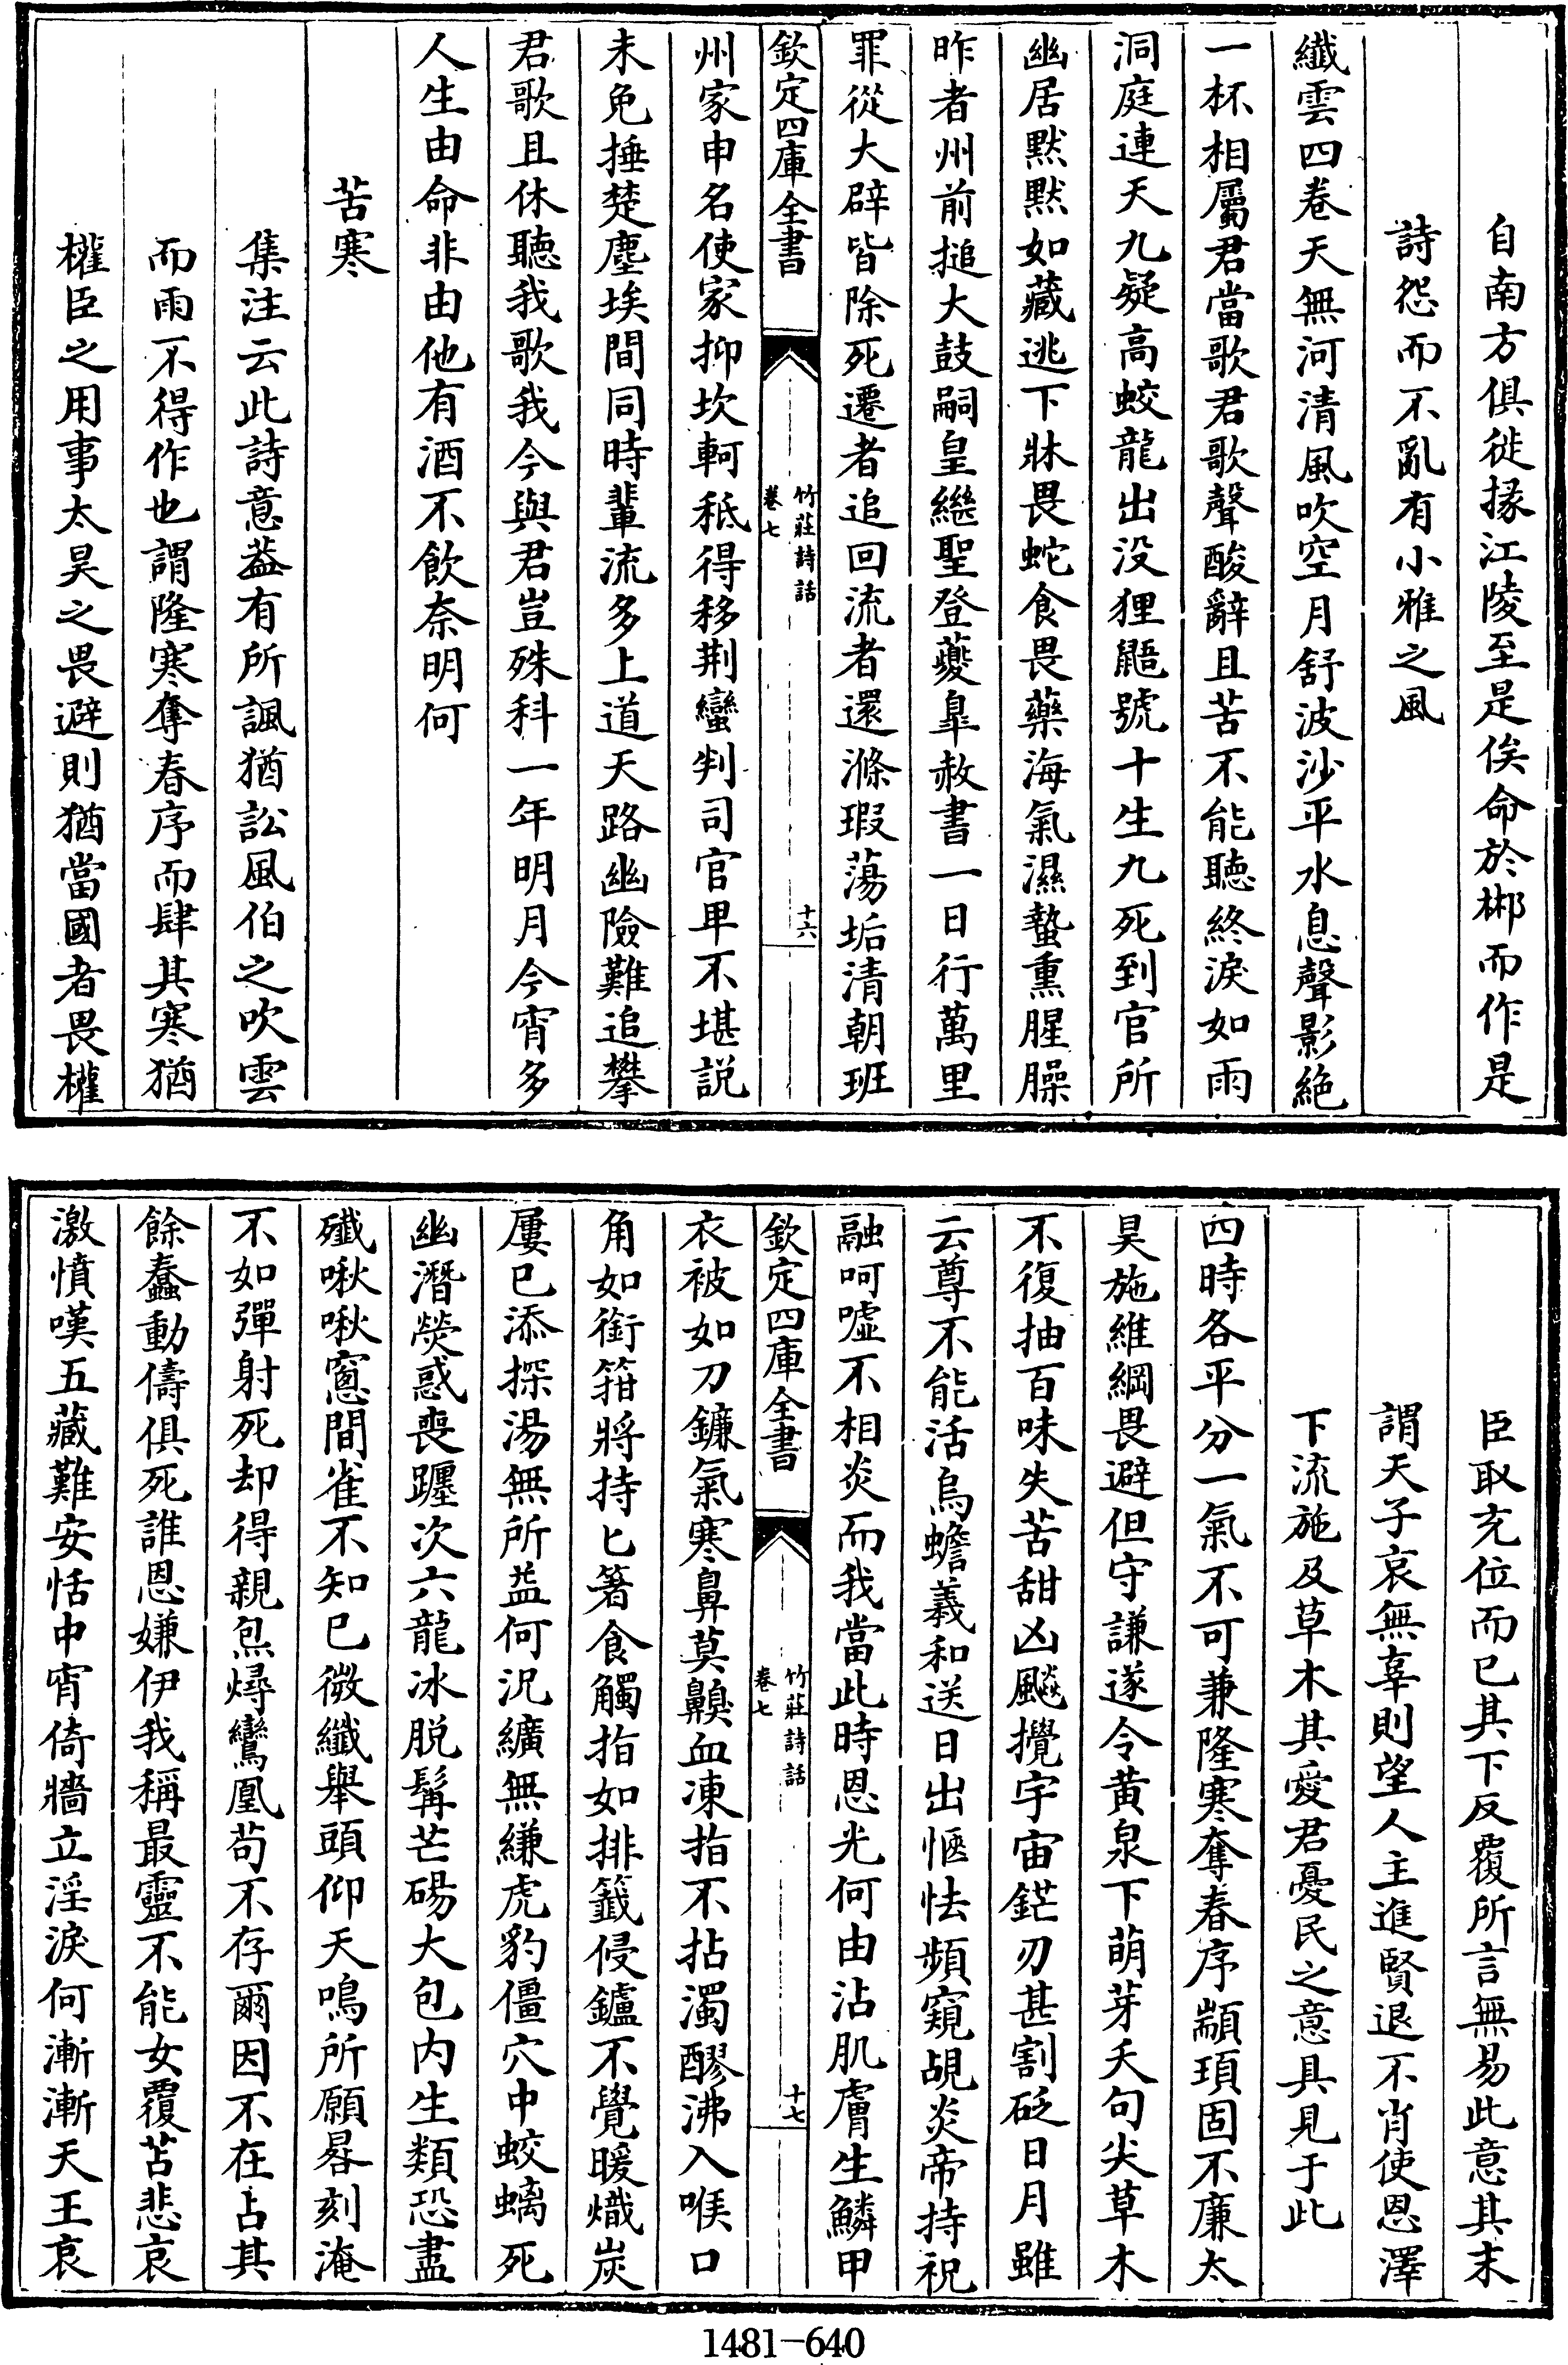 自南方俱徙掾江陵至是俟命於郴而作是
詩怨而不亂有小雅之風
纖雲四卷天無河清風吹空月舒波沙平水息聲影絶
一杯相屬君當歌君歌聲酸辭且苦不能聽終淚如雨
洞庭連天九疑高蛟龍出没狸鼯號十生九死到官所
幽居黙黙如藏逃下牀畏蛇食畏藥海氣濕蟄熏腥臊
昨者州前搥大鼓嗣皇繼聖登夔臯赦書一日行萬里
罪從大辟皆除死遷者追回流者還滌瑕蕩垢清朝班
欽定四庫全書
竹莊詩話
卷七
十六
州家申名使家抑坎軻秪得移荆蠻判司官卑不堪説
未免捶楚塵埃間同時輩流多上道天路幽險難追攀
君歌且休聽我歌我今與君豈殊科一年明月今宵多
人生由命非由他有酒不飲奈明何
苦寒
集注云此詩意葢有所諷猶訟風伯之吹雲
而雨不得作也謂隆寒奪春序而肆其寒猶
權臣之用事太昊之畏避則猶當國者畏權
臣取充位而已其下反覆所言無易此意其末
謂天子哀無辜則望人主進賢退不肖使恩澤
下流施及草木其愛君憂民之意具見于此
四時各平分一氣不可兼隆寒奪春序顓頊固不廉太
昊施維綱畏避但守謙遂令黄泉下萌芽夭句尖草木
不復抽百味失苦甜凶飇攪宇宙鋩刃甚割砭日月雖
云尊不能活烏蟾羲和送日出恇怯頻窺覘炎帝持祝
融呵嘘不相炎而我當此時恩光何由沾肌膚生鱗甲
欽定四庫全書
竹莊詩話
卷七
十七
衣被如刀鐮氣寒鼻莫齅血凍指不拈濁醪沸入喉口
角如銜箝將持匕箸食觸指如排籤侵鑪不覺暖熾炭
屢已添探湯無所益何況纊無縑虎豹僵穴中蛟螭死
幽潛熒惑喪躔次六龍冰脱髯芒碭大包内生類恐盡
殱啾啾窻間雀不知已微纖舉頭仰天鳴所願晷刻淹
不如彈射死却得親炰燖鸞凰苟不存爾因不在占其
餘蠢動儔俱死誰恩嫌伊我稱最靈不能女覆苫悲哀
激憤嘆五藏難安恬中宵倚牆立淫淚何漸漸天王哀
1481-640